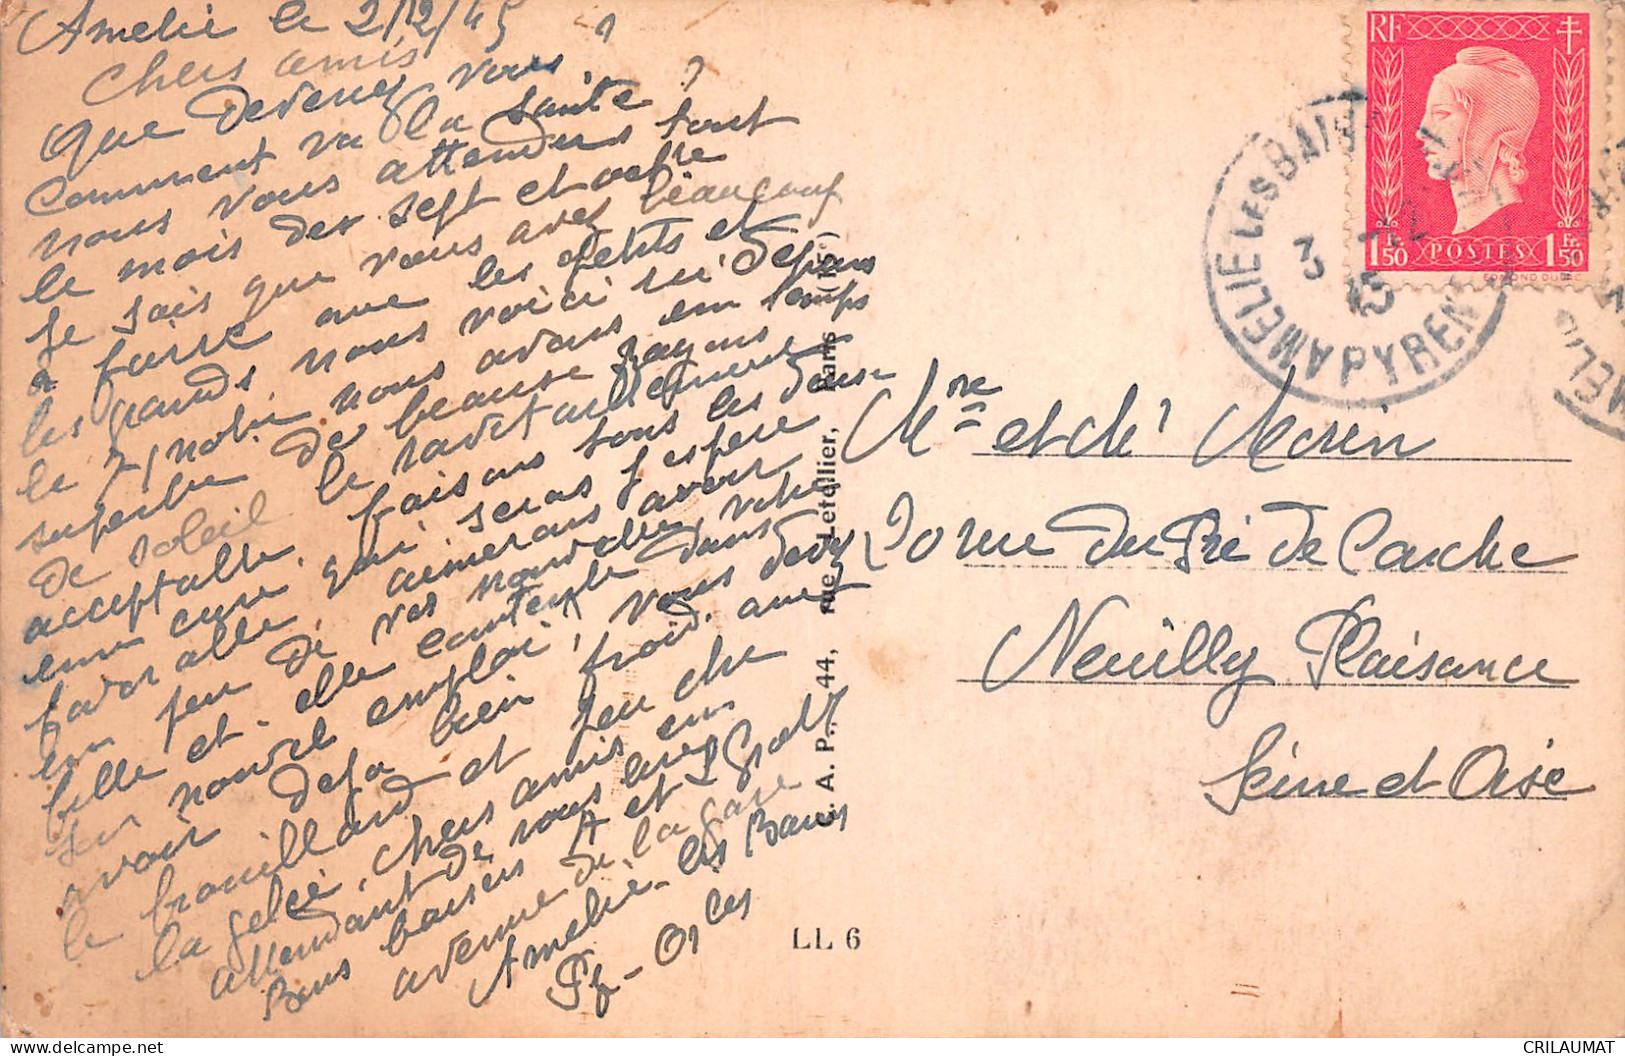 Amelie le 2/12/45
Chers amis
que devenez vous ?
Comment va la santé ?
nous vous attendions tout
le mois de sept et octbre
je sais que vous avez beaucoup
a faire avec les petits et
les grands nous voici ici depuis
le 7 nobre nous avons un temps
superbe de beause rayons
de soleil le ravitaillement
acceptable. faisons tous les deux
une cure qui seras j'espere
favorable, aimerais avoir
un peu de vos nouvelles, votre
fille et-elle contente dans
son nouvel emploi, vous devez
avoir deja bien froid. avec
le brouillard et peu che
la gelée, chers amis en
attendant de vous lire
Bons baisers A et J
avenue de la gare
Amelie-les Bains
Py-Ores
LL 6
A. P., 44, rue Letellier, Paris (15e)
RF
1F50 POSTES 1Fr.50
EDMOND DULAC
AMELIE LES BAINS
3 -12
45
PYREN
Mme et Mr Morin
20 rue du Pré de Larche
Neuilly Plaisance
Seine et Oise
CRILAUMAT